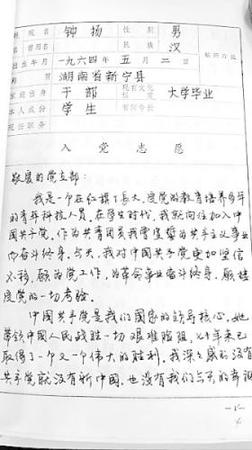 姓名 钟扬 性别 男
民族 汉
出生年月 一九六四年五月二日
湖南省新宁县
家庭出身 干部 文化 大学毕业
本人成份 学生
现任职务
入党志愿
敬爱的党支部：
我是一个在红旗下长大、受党的教育培养多年
的青年科技人员，在学生时代，我就向往加入中
国共产党。作为共青团员我曾宣誓为共产主义事业
而奋斗终身。今天，我对中国共产党更加坚信
不移，愿为党工作，为革命事业奋斗终身，愿接
受党的一切考验。
中国共产党是我们国家的领导核心，她
带领中国人民战胜一切艰难险阻，七十年来已
取得了一个又一个伟大的胜利。我深感没有
共产党就没有新中国，也没有我们今天的幸福